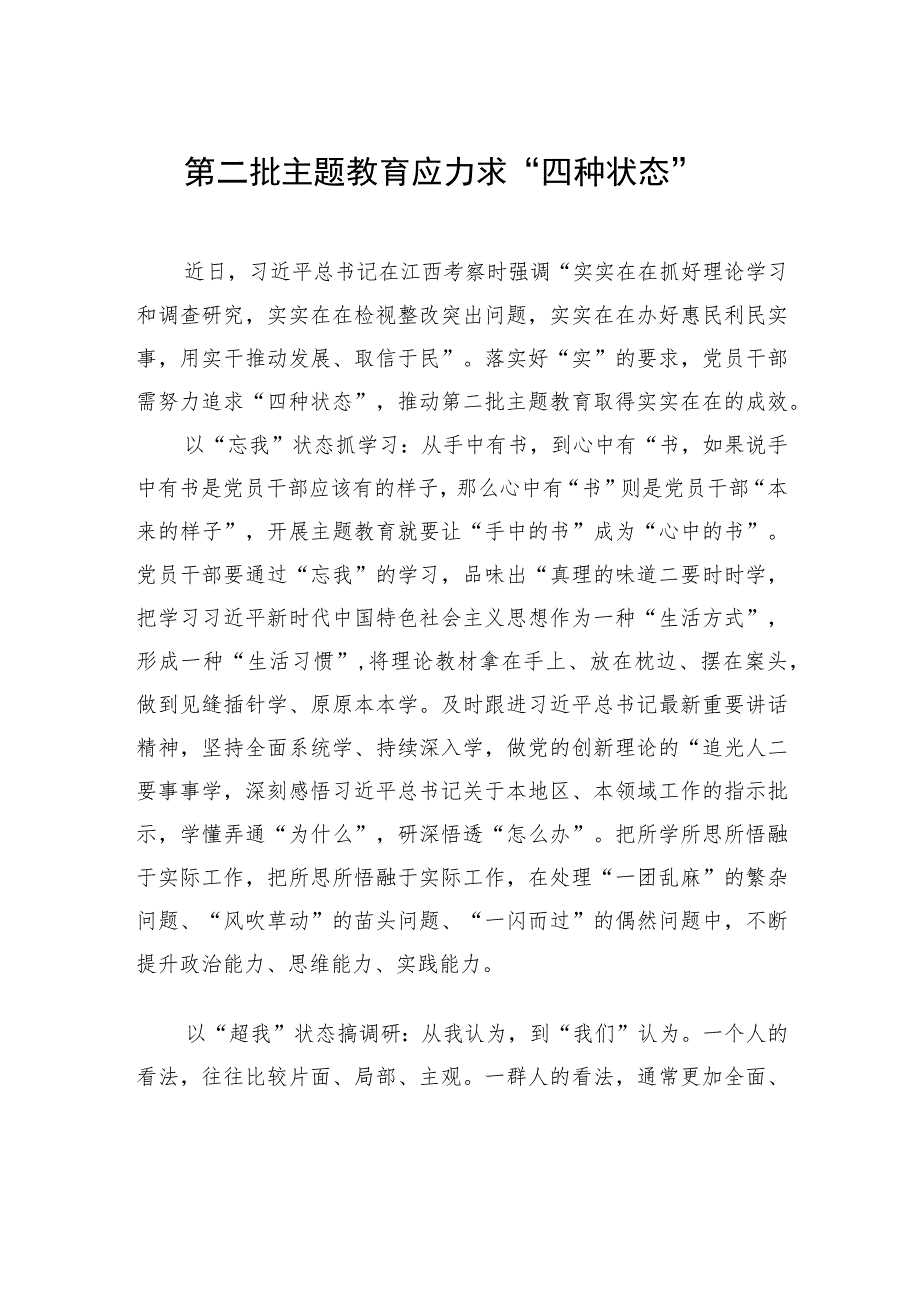 第二批主题教育应力求“四种状态”
近日，习近平总书记在江西考察时强调“实实在在抓好理论学习
和调查研究，实实在在检视整改突出问题，实实在在办好惠民利民实
事，用实干推动发展、取信于民”。落实好“实”的要求，党员干部
需努力追求“四种状态”，推动第二批主题教育取得实实在在的成效。
以“忘我”状态抓学习：从手中有书，到心中有“书，如果说手
中有书是党员干部应该有的样子，那么心中有“书”则是党员干部“本
来的样子”，开展主题教育就要让“手中的书”成为“心中的书”。
党员干部要通过“忘我”的学习，品味出“真理的味道二要时时学，
把学习习近平新时代中国特色社会主义思想作为一种“生活方式”，
形成一种“生活习惯”,将理论教材拿在手上、放在枕边、摆在案头，
做到见缝插针学、原原本本学。及时跟进习近平总书记最新重要讲话
精神，坚持全面系统学、持续深入学，做党的创新理论的“追光人二
要事事学，深刻感悟习近平总书记关于本地区、本领域工作的指示批
示，学懂弄通“为什么”，研深悟透“怎么办”。把所学所思所悟融
于实际工作，把所思所悟融于实际工作，在处理“一团乱麻”的繁杂
问题、“风吹草动”的苗头问题、“一闪而过”的偶然问题中，不断
提升政治能力、思维能力、实践能力。
以“超我”状态搞调研：从我认为，到“我们”认为。一个人的
看法，往往比较片面、局部、主观。一群人的看法，通常更加全面、